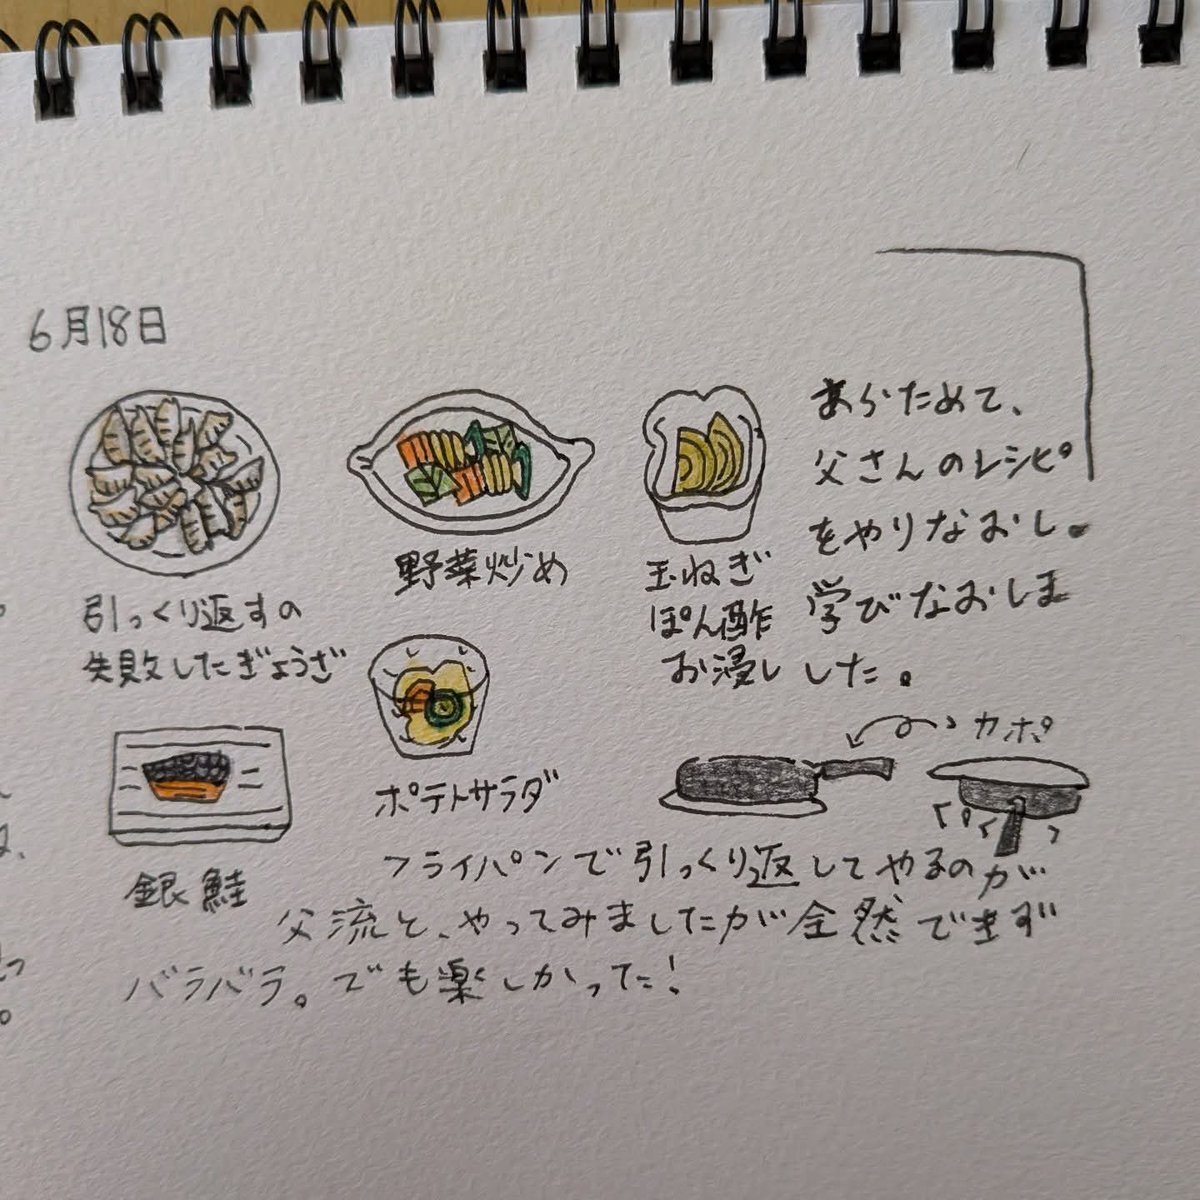 6月18日
引っくり返すの
失敗したぎょうざ
野菜炒め
玉ねぎ
ぽん酢
お浸し
あらためて、
父さんのレシピ
をやりなおし。
学びなおしま
した。
銀鮭
ポテトサラダ
カポ
フライパンで引っくり返してやるのが
父流と、やってみましたが全然できず
バラバラ。でも楽しかった!